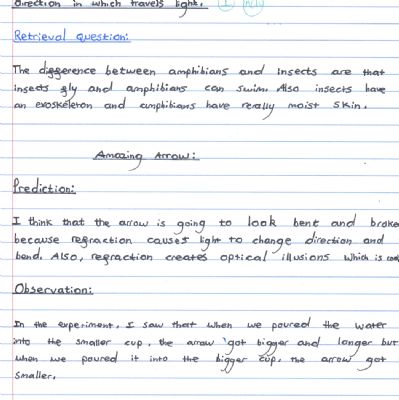 direction in which travels light.
Retrieval question:
The difference between amphibians and insects are that
insects fly and amphibians can swim. Also insects have
an exoskeleton and amphibians have really moist skin.
Amazing Arrow:
Prediction:
I think that the arrow is going to look bent and broke
because refraction causes light to change direction and
bend. Also, refraction creates optical illusions which is cool
Observation:
In the experiment, I saw that when we poured the water
into the smaller cup, the arrow got bigger and longer but
when we poured it into the bigger cup, the arrow got
smaller.